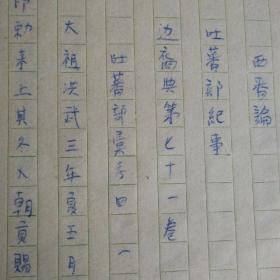 西番論
吐蕃部紀事
边裔典第七十一卷
吐蕃部彙考四 一
太祖洪武三年夏五月
勅来上其冬入朝貢賜